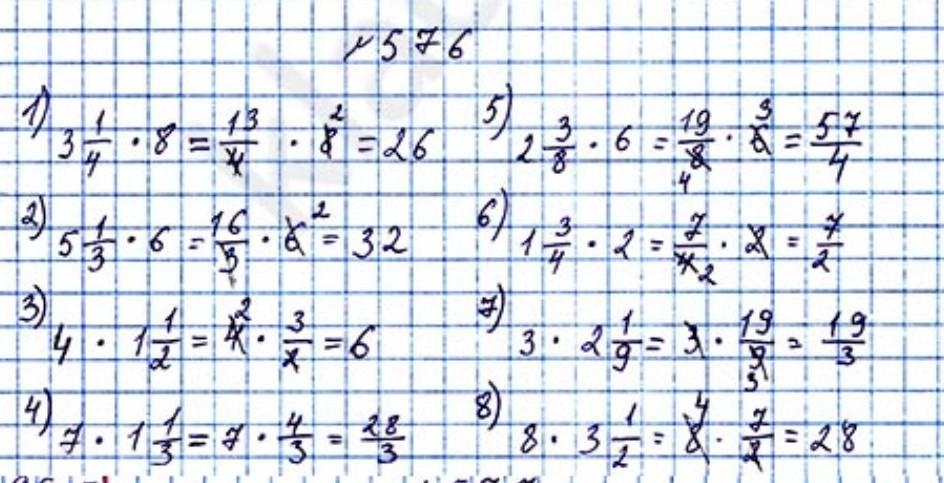 № 576
1) 3 1/4 · 8 = 13/4 · 8 2 = 26
2) 5 1/3 · 6 = 16/3 · 6 2 = 32
3) 4 · 1 1/2 = 4 2 · 3/2 = 6
4) 7 · 1 1/3 = 7 · 4/3 = 28/3
5) 2 3/8 · 6 = 19/8 4 · 6 3 = 57/4
6) 1 3/4 · 2 = 7/4 2 · 2 = 7/2
7) 3 · 2 1/9 = 3 · 19/9 3 = 19/3
8) 8 · 3 1/2 = 8 4 · 7/2 = 28